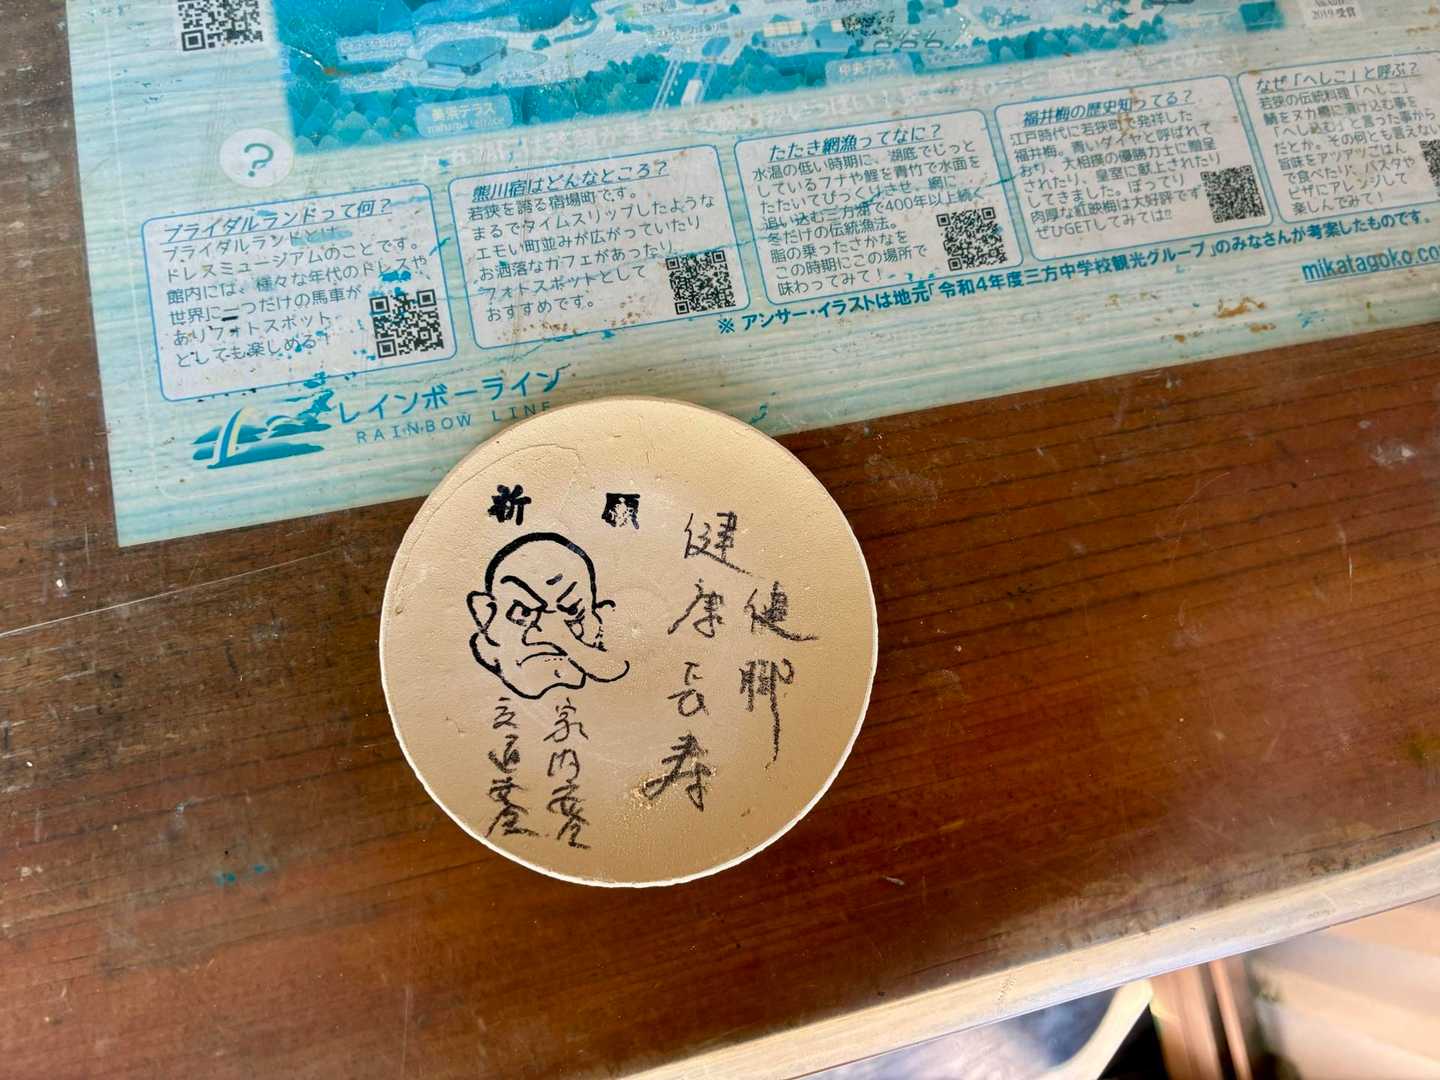 2019受賞
中央テラス
美浜テラス
mihama terrace
?
ブライダルランドって何?
ブライダルランドとは、
ドレスミュージアムのことです。
館内には、様々な年代のドレスや
世界に一つだけの馬車が
ありフォトスポット
としても楽しめる!
熊川宿はどんなところ?
若狭を誇る宿場町です。
まるでタイムスリップしたような
エモい町並みが広がっていたり
お洒落なカフェがあったり
フォトスポットとして
おすすめです。
たたき網漁ってなに?
水温の低い時期に、湖底でじっと
しているフナや鯉を青竹で水面を
たたいてびっくりさせ、網に
追い込む三方湖で400年以上続く
冬だけの伝統漁法。
脂の乗ったさかなを
この時期にこの場所で
味わってみて!
福井梅の歴史知ってる?
江戸時代に若狭町で発祥した
福井梅。青いダイヤと呼ばれて
おり、大相撲の優勝力士に贈呈
されたり、皇室に献上されたり
してきました。ぽってり
肉厚な紅映梅は大好評です
ぜひGETしてみては!!
なぜ「へしこ」と呼ぶ?
若狭の伝統料理「へしこ」
鯖をヌカ樽に漬け込む事を
「へし込む」と言った事から
だとか。その何とも言えない
旨味をアツアツごはん
で食べたり、パスタや
ピザにアレンジして
楽しんでみて!
※ アンサー・イラストは地元「令和4年度三方中学校観光グループ」のみなさんが考案したものです。
mikatagoko.co
レインボーライン
RAINBOW LINE
祈 願
健脚
健康長寿
家内安全
交通安全